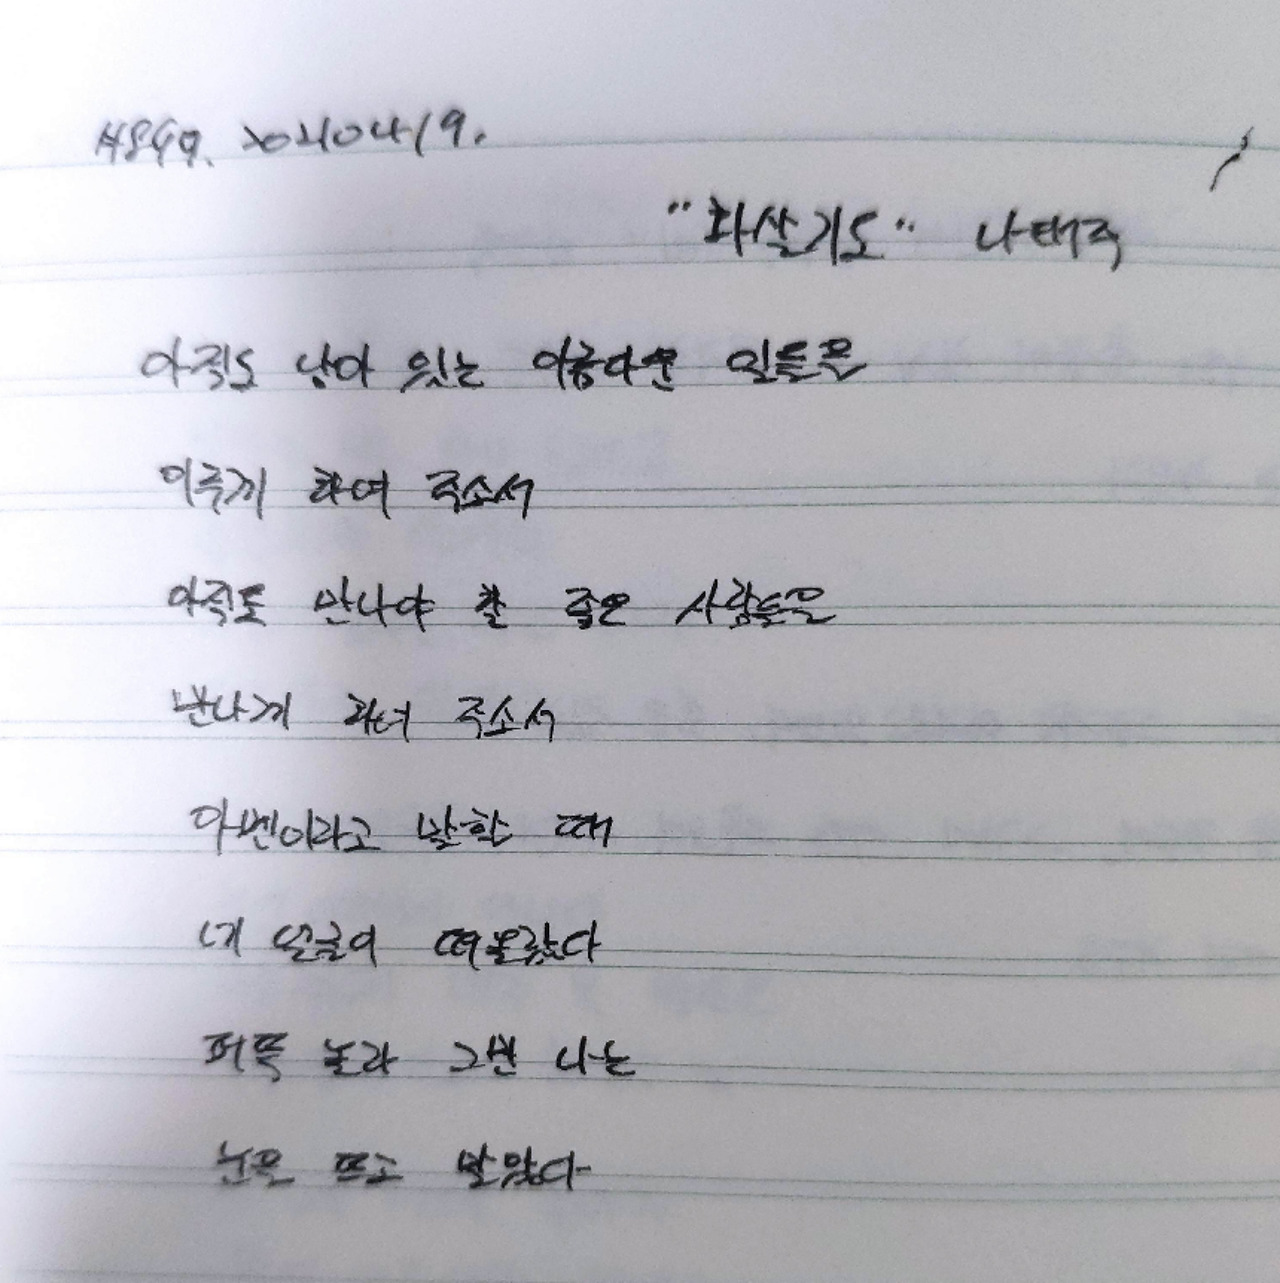 20210419.
"화살기도" 나태주
아직도 남아 있는 아름다운 일들을
이루게 하여 주소서
아직도 만나야 할 좋은 사람들을
만나게 하여 주소서
아멘이라고 말할 때
네 얼굴이 떠올랐다
퍼뜩 놀라 그만 나는
눈을 뜨고 말았다